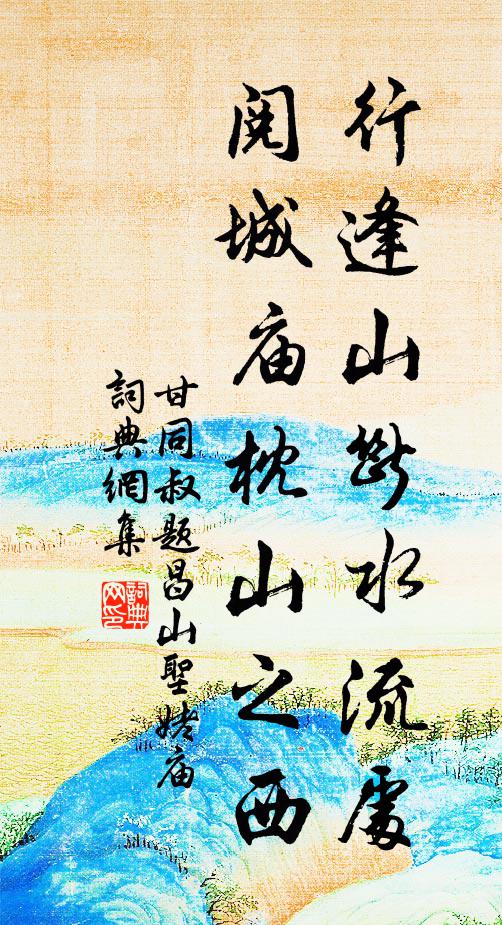 行逢山断水流處
阅城庙枕山之西
甘同叔题昌山聖姥庙
詞典網集
詞典